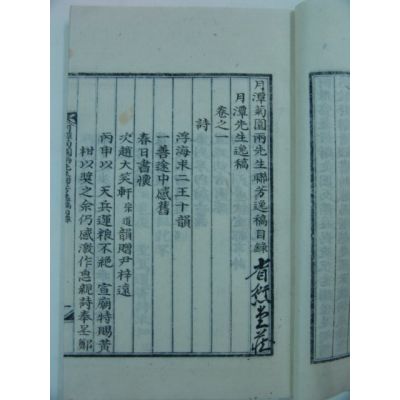 月潭菊圃兩先生聯芳逸稿目錄
月潭先生逸稿
卷之一
詩
浮海來二王十韻
一善途中感舊
春日書懷
次趙大笑軒宗道韻贈尹梓遠
丙申以天兵運粮不絶 宣廟特賜黃
柑以奬之余仍感激作思親詩奉呈鄭